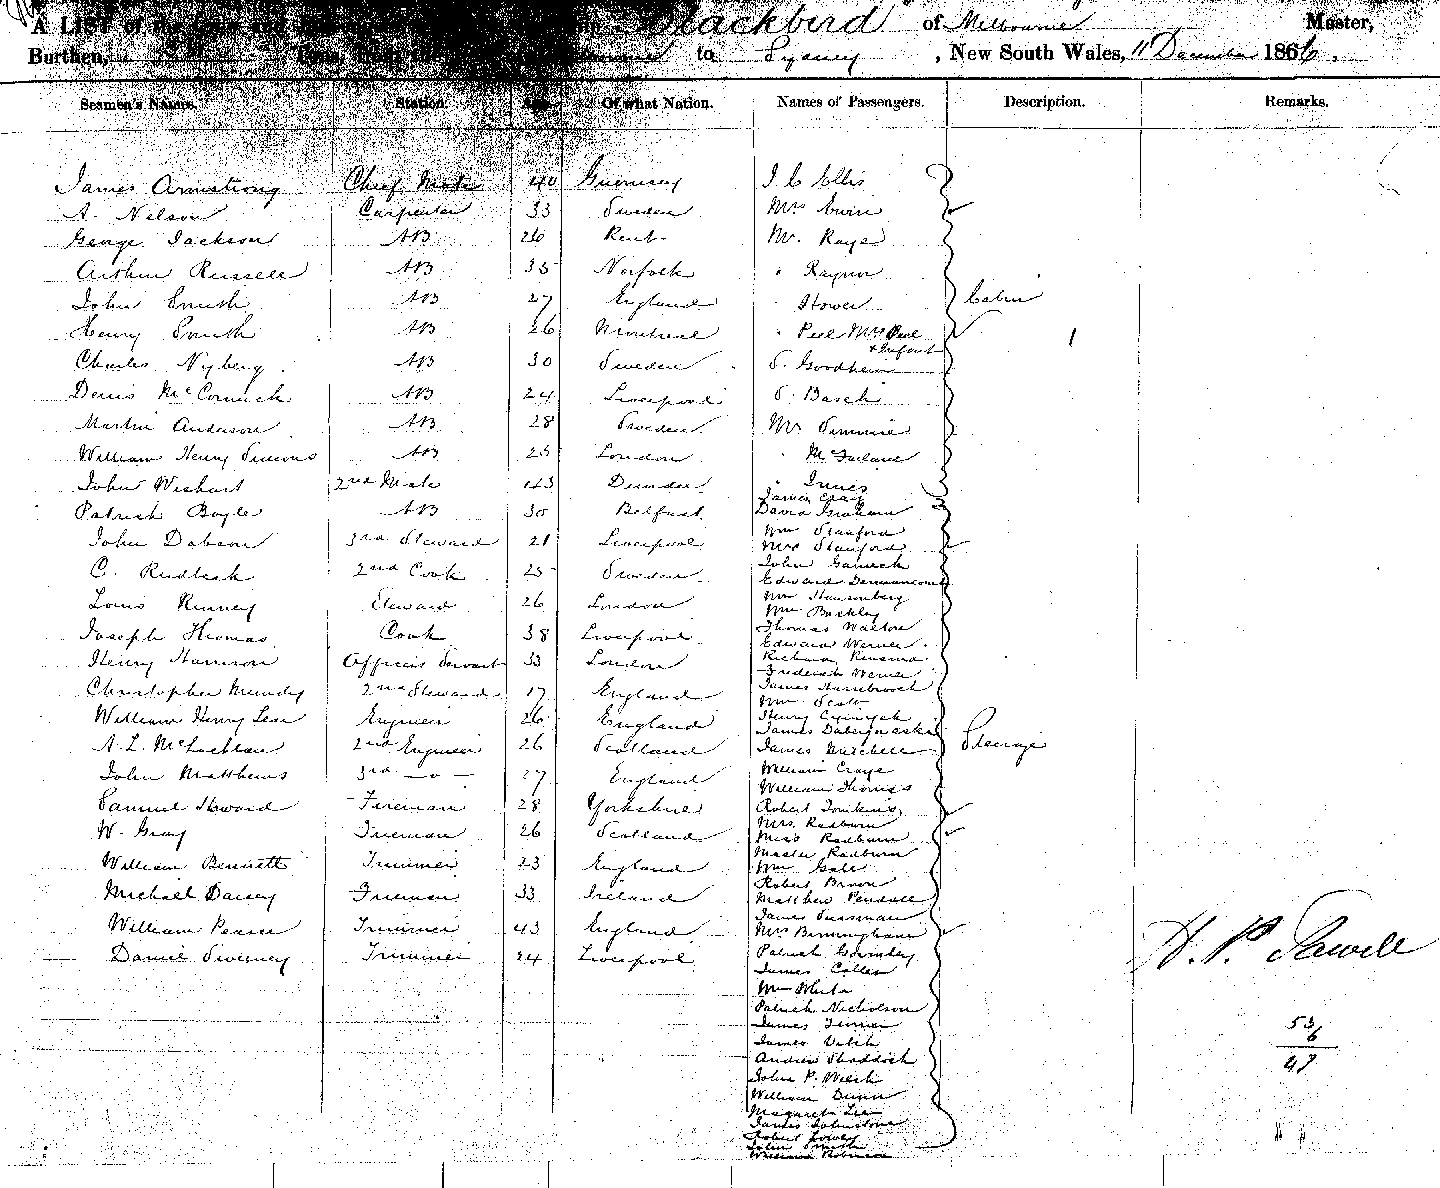 A LIST of Blackbird of Melbourne Master,
Burthen, to Sydney, New South Wales, 11 December 1866.
Seamen's Names. Station. Age. Of what Nation. Names of Passengers. Description. Remarks.
James Armstrong Chief Mate 40 Guernsey J C Ellis
A. Nelson Carpenter 33 Sweden Mrs
George Jackson AB 26 Kent Mr. Raye
Arthur Russell AB 35 Norfolk " Raynor
John Smith AB 27 England " Hower Cabin
Henry Smith AB 26 Montreal " Peel Mrs Peel
+ Infant
Charles Nyberg AB 30 Sweden S. Goodheim
Denis McCormick AB 24 Liverpool S. Basch
Martin Anderson AB 28 Sweden Mr Simmie
William Henry AB 25 London " McFarland
John Wishart 2nd Mate 43 Dundee " Innes
James Craig
Patrick Boyle AB 30 Belfast David Graham
Wm Stanford
John Dobson 3rd Steward 21 Liverpool Mrs Stanford
John
C. 2nd Cook 25 Sweden Edward
Wm
Louis Kinney Steward 26 London Wm Buckley
Thomas Walton
Joseph Thomas Cook 38 Liverpool Edward Werner
Henry Harrison Officers Servant 33 London Richard
Frederick Werner
Christopher Mundy 2nd Steward 17 England James
Wm Scott
William Henry Lear Engineer 26 England Henry
James
A. L. McLachlan 2nd Engineer 26 Scotland James Mitchell Steerage
William Craye
John Matthews 3rd — o — 27 England William Thomas
Samuel Howard Fireman 28 Yorkshire Robert Tomkins
Mrs. Radburn
W. Gray Fireman 26 Scotland Miss Radburn
Master Radburn
William Bennett Trimmer 23 England Wm Gale
Robert Brown
Michael Darsey Fireman 33 Ireland Matthew Pendall
James Sussman
William Pearce Trimmer 43 England Mrs Birmingham
H. P.
Daniel Sweeney Trimmer 24 Liverpool Patrick Gormley
James
Wm White
Patrick Nicholson
James Turner
James Veitch
53
6
47
Andrew Shaddock
John P. Welsh
William Dunn
Margaret Lee
James Johnstone
Robert Lowey
John Smith
William Robinson